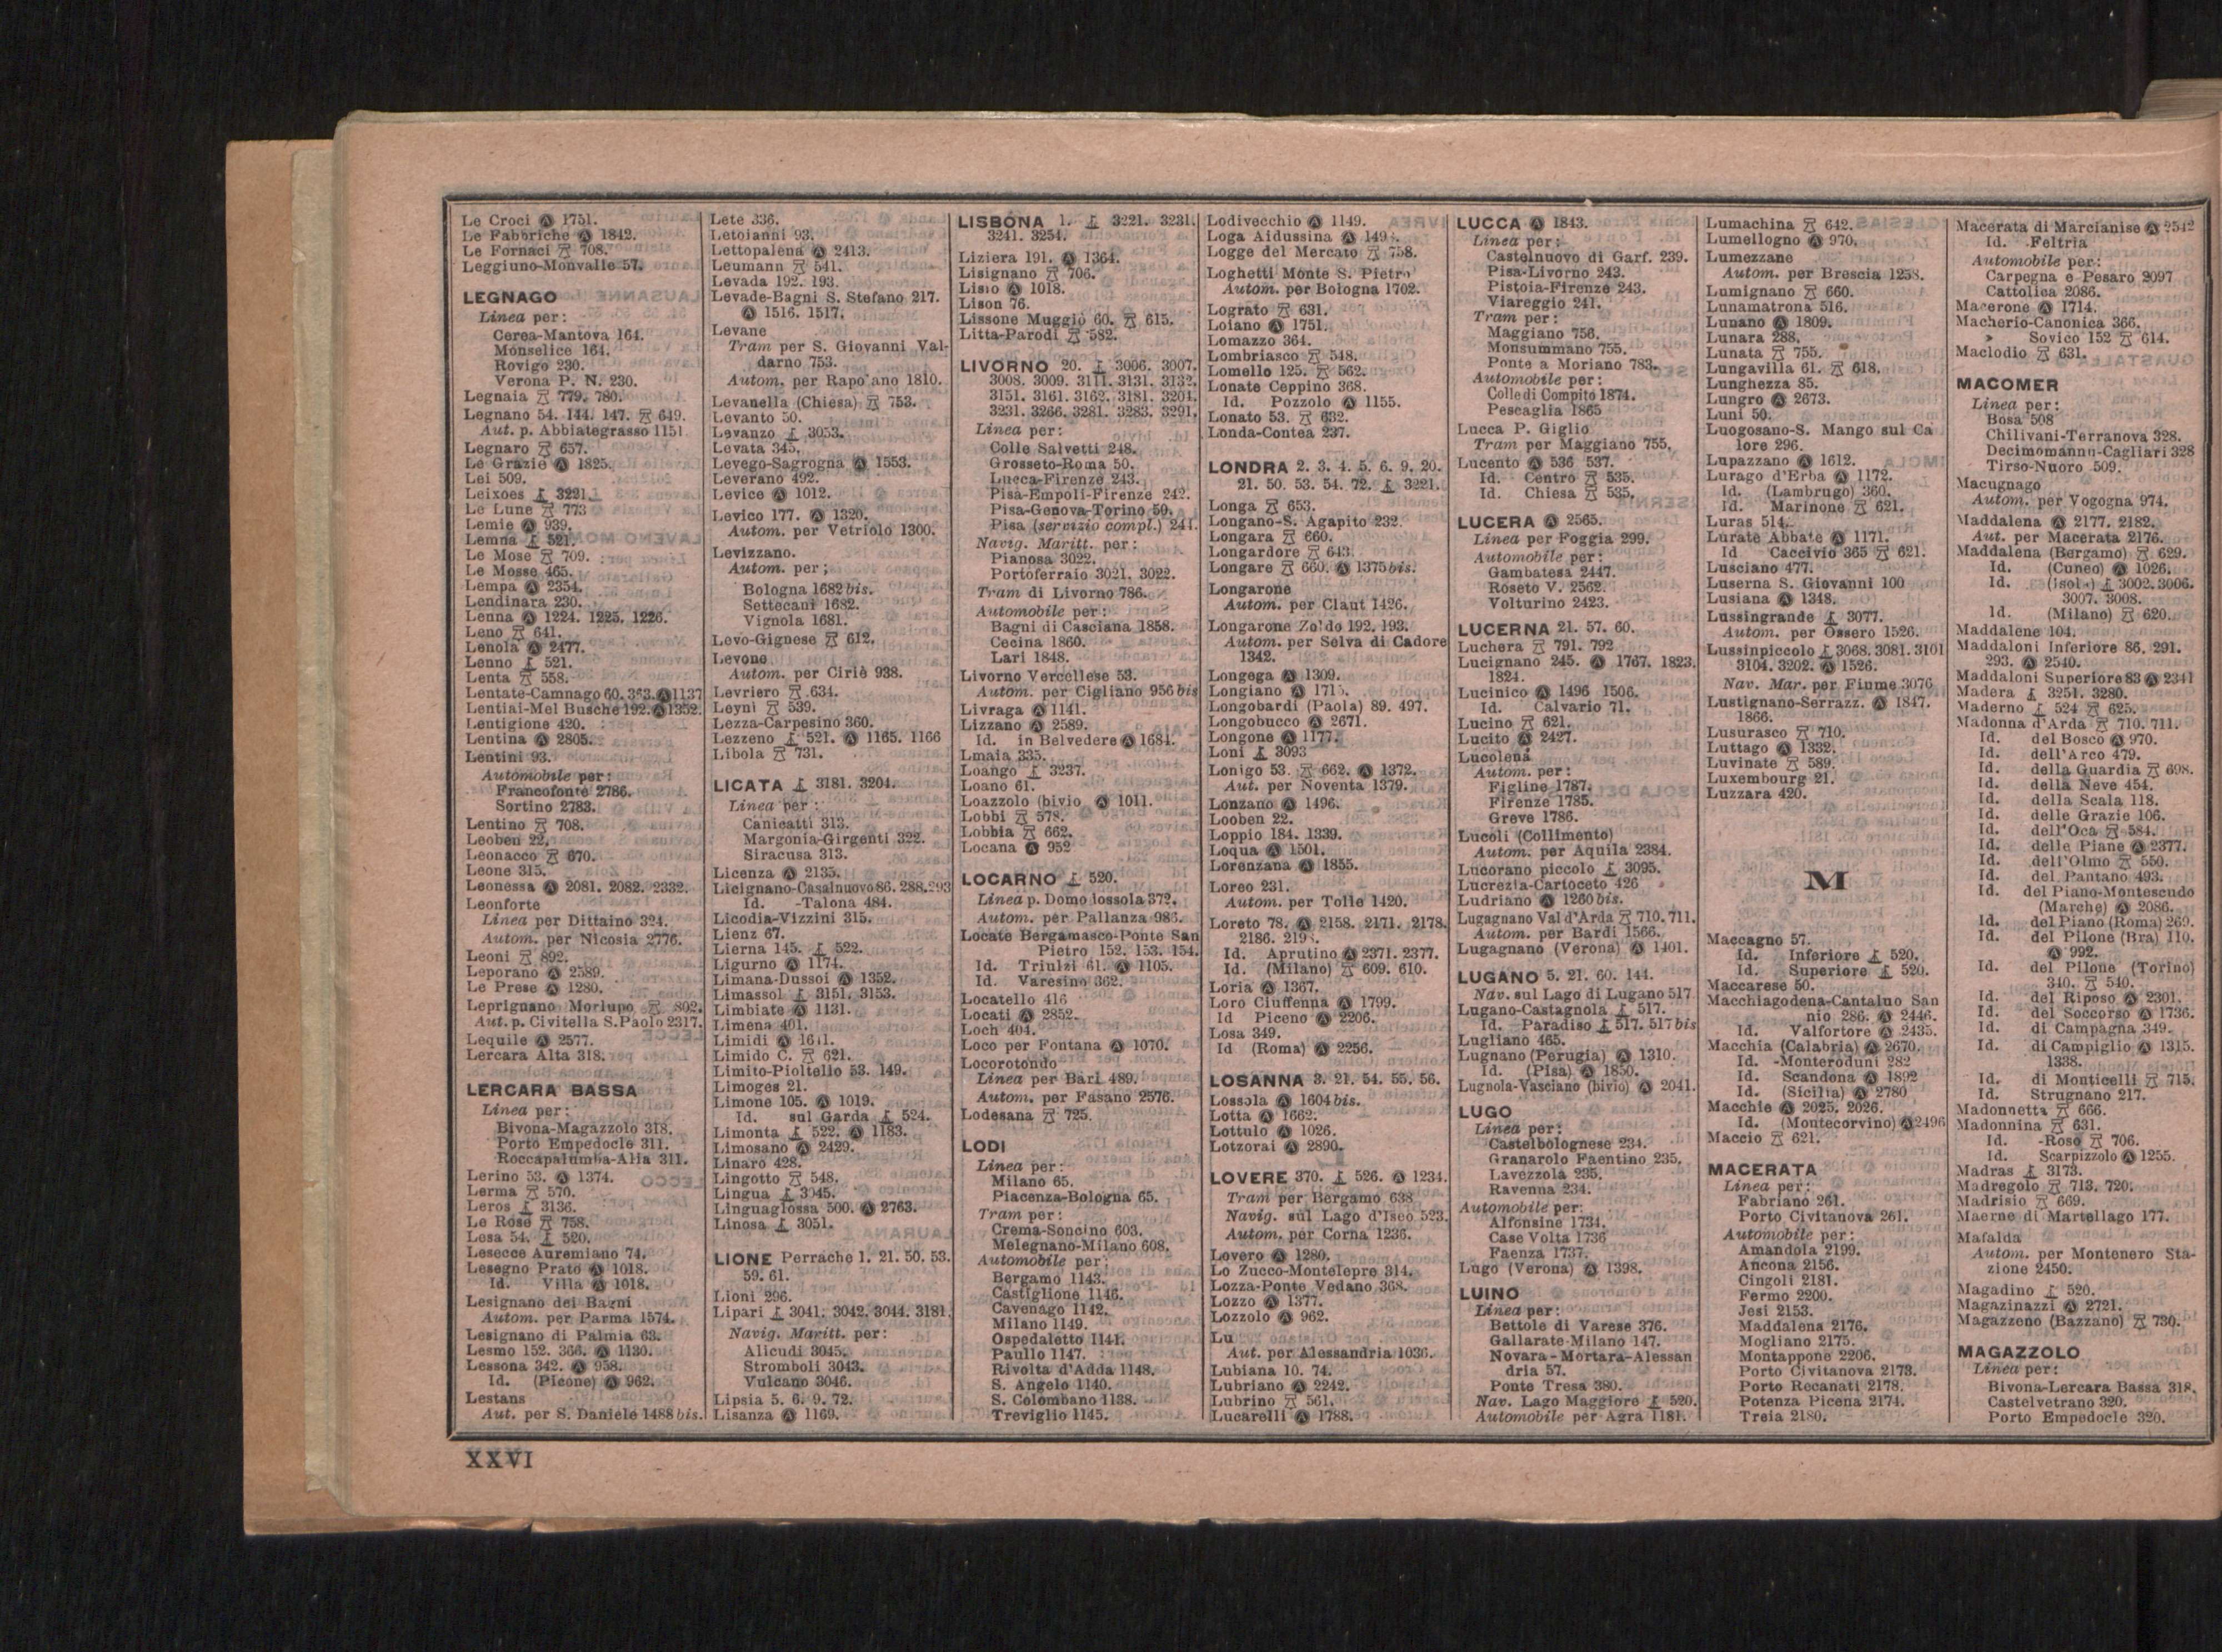 Le Croci Ⓐ 1751.
Le Fabbriche Ⓐ 1842.
Le Fornaci 708.
Leggiuno-Monvalle 57.
LEGNAGO
Linea per:
Cerea-Mantova 164.
Monselice 164.
Rovigo 230.
Verona P. N. 230.
Legnaia 779. 780.
Legnano 54. 144. 147. 649.
Aut. p. Abbiategrasso 1151
Legnaro 657.
Le Grazie Ⓐ 1825.
Lei 509.
Leixoes 3221.
Le Lune 773
Lemie Ⓐ 939.
Lemna 521.
Le Mose 709.
Le Mosse 465.
Lempa Ⓐ 2354.
Lendinara 230.
Lenna Ⓐ 1224. 1225. 1226.
Leno 641.
Lenola Ⓐ 2477.
Lenno 521.
Lenta 558.
Lentate-Camnago 60. 363. Ⓐ 1137
Lentiai-Mel Busche 192. Ⓐ 1352.
Lentigione 420.
Lentina Ⓐ 2805.
Lentini 93.
Automobile per:
Francofonte 2786.
Sortino 2783.
Lentino 708.
Leoben 22.
Leonacco 670.
Leone 315.
Leonessa Ⓐ 2081. 2082. 2332.
Leonforte
Linea per Dittaino 324.
Autom. per Nicosia 2776.
Leoni 892.
Leporano Ⓐ 2589.
Le Prese Ⓐ 1280.
Leprignano Morlupo 802.
Aut. p. Civitella S. Paolo 2317.
Lequile Ⓐ 2577.
Lercara Alta 318.
LERCARA BASSA
Linea per:
Bivona-Magazzolo 318.
Porto Empedocle 311.
Roccapalumba-Alia 311.
Lerino 53. Ⓐ 1374.
Lerma 570.
Leros 3136.
Le Rose 758.
Lesa 54. 520.
Lesecce Auremiano 74.
Lesegno Prato Ⓐ 1018.
Id. Villa Ⓐ 1018.
Lesignano dei Bagni
Autom. per Parma 1574.
Lesignano di Palmia 63.
Lesmo 152. 366. Ⓐ 1130.
Lessona 342. Ⓐ 958.
Id. (Picone) Ⓐ 962.
Lestans
Aut. per S. Daniele 1488 bis.
Lete 336.
Letoianni 93.
Lettopalena Ⓐ 2413.
Leumann 541.
Levada 192. 193.
Levade-Bagni S. Stefano 217.
Ⓐ 1516. 1517.
Levane
Tram per S. Giovanni Val-
darno 753.
Autom. per Rapolano 1810.
Levanella (Chiesa) 753.
Levanto 50.
Levanzo 3053.
Levata 345.
Levego-Sagrogna Ⓐ 1553.
Leverano 492.
Levice Ⓐ 1012.
Levico 177. Ⓐ 1320.
Autom. per Vetriolo 1300.
Levizzano.
Autom. per;
Bologna 1682 bis.
Settecani 1682.
Vignola 1681.
Levo-Gignese 612.
Levone
Autom. per Ciriè 938.
Levriero 634.
Leyni 539.
Lezza-Carpesino 360.
Lezzeno 521. Ⓐ 1165. 1166
Libola 731.
LICATA 3181. 3204.
Linea per:
Canicattì 313.
Margonia-Girgenti 322.
Siracusa 313.
Licenza Ⓐ 2135.
Licignano-Casalnuovo 86. 288. 293
Id. -Talona 484.
Licodia-Vizzini 315.
Lienz 67.
Lierna 145. 522.
Ligurno Ⓐ 1174.
Limana-Dussoi Ⓐ 1352.
Limassol 3151. 3153.
Limbiate Ⓐ 1131.
Limena 401.
Limidi Ⓐ 1641.
Limido C. 621.
Limito-Pioltello 53. 149.
Limoges 21.
Limone 105. Ⓐ 1019.
Id. sul Garda 524.
Limonta 522. Ⓐ 1183.
Limosano Ⓐ 2429.
Linaro 428.
Lingotto 548.
Lingua 3045.
Linguaglossa 500. Ⓐ 2763.
Linosa 3051.
LIONE Perrache 1. 21. 50. 53.
59. 61.
Lioni 296.
Lipari 3041. 3042. 3044. 3181.
Navig. Maritt. per:
Alicudi 3045.
Stromboli 3043.
Vulcano 3046.
Lipsia 5. 6. 9. 72.
Lisanza Ⓐ 1169.
LISBONA 1. 3221. 3231.
3241. 3254.
Liziera 191. Ⓐ 1364.
Lisignano 706.
Lisio Ⓐ 1018.
Lison 76.
Lissone Muggiò 60. 615.
Litta-Parodi 582.
LIVORNO 20. 3006. 3007.
3008. 3009. 3111. 3131. 3132.
3151. 3161. 3162. 3181. 3201.
3231. 3266. 3281. 3283. 3291.
Linea per:
Colle Salvetti 248.
Grosseto-Roma 50.
Lucca-Firenze 243.
Pisa-Empoli-Firenze 242.
Pisa-Genova-Torino 50.
Pisa (servizio compl.) 244.
Navig. Maritt. per:
Pianosa 3022.
Portoferraio 3021. 3022.
Tram di Livorno 786.
Automobile per:
Bagni di Casciana 1858.
Cecina 1860.
Lari 1848.
Livorno Vercellese 53.
Autom. per Cigliano 956 bis
Livraga Ⓐ 1141.
Lizzano Ⓐ 2589.
Id. in Belvedere Ⓐ 1684.
Lmaia 335.
Loango 3237.
Loano 61.
Loazzolo (bivio Ⓐ 1011.
Lobbi 578.
Lobbia 662.
Locana Ⓐ 952
LOCARNO 520.
Linea p. Domodossola 372.
Autom. per Pallanza 986.
Locate Bergamasco-Ponte San
Pietro 152. 153. 154.
Id. Triulzi 61. Ⓐ 1105.
Id. Varesino 362.
Locatello 416
Locati Ⓐ 2852.
Loch 404.
Loco per Fontana Ⓐ 1070.
Locorotondo
Linea per Bari 489.
Autom. per Fasano 2576.
Lodesana 725.
LODI
Linea per:
Milano 65.
Piacenza-Bologna 65.
Tram per:
Crema-Soncino 603.
Melegnano-Milano 608.
Automobile per:
Bergamo 1143.
Castiglione 1146.
Cavenago 1142.
Milano 1149.
Ospedaletto 1141.
Paullo 1147.
Rivolta d'Adda 1148.
S. Angelo 1140.
S. Colombano 1138.
Treviglio 1145.
Lodivecchio Ⓐ 1149.
Loga Aidussina Ⓐ
Logge del Mercato 758.
Loghetti Monte S. Pietro
Autom. per Bologna 1702.
Lograto 631.
Loiano Ⓐ 1751.
Lomazzo 364.
Lombriasco 548.
Lomello 125. 562.
Lonate Ceppino 368.
Id. Pozzolo Ⓐ 1155.
Lonato 53. 632.
Londa-Contea 237.
LONDRA 2. 3. 4. 5. 6. 9. 20.
21. 50. 53. 54. 72. 3221.
Longa 653.
Longano-S. Agapito 232.
Longara 660.
Longardore 643.
Longare 660. Ⓐ 1375 bis.
Longarone
Autom. per Claut 1426.
Longarone Zoldo 192. 193.
Autom. per Selva di Cadore
1342.
Longega Ⓐ 1309.
Longiano Ⓐ
Longobardi (Paola) 89. 497.
Longobucco Ⓐ 2671.
Longone Ⓐ 1177.
Loni 3093
Lonigo 53. 662. Ⓐ 1372.
Aut. per Noventa 1379.
Lonzano Ⓐ 1496.
Looben 22.
Loppio 184. 1339.
Loqua Ⓐ 1501.
Lorenzana Ⓐ 1855.
Loreo 231.
Autom. per Tolle 1420.
Loreto 78. Ⓐ 2158. 2171. 2178.
2186.
Id. Aprutino Ⓐ 2371. 2377.
Id. (Milano) 609. 610.
Loria Ⓐ 1367.
Loro Ciuffenna Ⓐ 1799.
Id Piceno Ⓐ 2206.
Losa 349.
Id (Roma) Ⓐ 2256.
LOSANNA 3. 21. 54. 55. 56.
Lossola Ⓐ 1604 bis.
Lotta Ⓐ 1662.
Lottulo Ⓐ 1026.
Lotzorai Ⓐ 2890.
LOVERE 370. 526. Ⓐ 1234.
Tram per Bergamo 638
Navig. sul Lago d'Iseo 523.
Autom. per Corna 1236.
Lovero Ⓐ 1280.
Lo Zucco-Montelepre 314.
Lozza-Ponte Vedano 368.
Lozzo Ⓐ 1377.
Lozzolo Ⓐ 962.
Lu
Aut. per Alessandria 1036.
Lubiana 10. 74.
Lubriano Ⓐ 2242.
Lubrino 561.
Lucarelli Ⓐ 1788.
LUCCA Ⓐ 1843.
Linea per:
Castelnuovo di Garf. 239.
Pisa-Livorno 243.
Pistoia-Firenze 243.
Viareggio 241.
Tram per:
Maggiano 756.
Monsummano 755.
Ponte a Moriano 783.
Automobile per:
Colle di Compito 1874.
Pescaglia 1865
Lucca P. Giglio
Tram per Maggiano 755.
Lucento Ⓐ 536 537.
Id. Centro 535.
Id. Chiesa 535.
LUCERA Ⓐ 2565.
Linea per Foggia 299.
Automobile per:
Gambatesa 2447.
Roseto V. 2562.
Volturino 2423.
LUCERNA 21. 57. 60.
Luchera 791. 792
Lucignano 245. Ⓐ 1767. 1823.
1824.
Lucinico Ⓐ 1496 1506.
Id. Calvario 71.
Lucino 621.
Lucito Ⓐ 2427.
Lucolena
Autom. per:
Figline 1787.
Firenze 1785.
Greve 1786.
Lucoli (Collimento)
Autom. per Aquila 2384.
Lucorano piccolo 3095.
Lucrezia-Cartoceto 426
Ludriano Ⓐ 1260 bis.
Lugagnano Val d'Arda 710. 711.
Autom. per Bardi 1566.
Lugagnano (Verona) Ⓐ 1401.
LUGANO 5. 21. 60. 144.
Nav. sul Lago di Lugano 517
Lugano-Castagnola 517.
Id. Paradiso 517. 517 bis
Lugliano 465.
Lugnano (Perugia) Ⓐ 1310.
Id. (Pisa) Ⓐ 1850.
Lugnola-Vasciano (bivio) Ⓐ 2041.
LUGO
Linea per:
Castelbolognese 234.
Granarolo Faentino 235.
Lavezzola 235.
Ravenna 234.
Automobile per:
Alfonsine 1734.
Case Volta 1736
Faenza 1737.
Lugo (Verona) Ⓐ 1398.
LUINO
Linea per:
Bettole di Varese 376.
Gallarate-Milano 147.
Novara-Mortara-Alessan
dria 57.
Ponte Tresa 380.
Nav. Lago Maggiore 520.
Automobile per Agra 1181.
Lumachina 642.
Lumellogno Ⓐ 970.
Lumezzane
Autom. per Brescia 1258.
Lumignano 660.
Lunamatrona 516.
Lunano Ⓐ 1809.
Lunara 288.
Lunata 755.
Lungavilla 61. 618.
Lunghezza 85.
Lungro Ⓐ 2673.
Luni 50.
Luogosano-S. Mango sul Ca
lore 296.
Lupazzano Ⓐ 1612.
Lurago d'Erba Ⓐ 1172.
Id. (Lambrugo) 360.
Id. Marinone 621.
Luras 514.
Lurate Abbate Ⓐ 1171.
Id Caccivio 365 621.
Lusciano 477.
Luserna S. Giovanni 100
Lusiana Ⓐ 1348.
Lussingrande 3077.
Autom. per Ossero 1526.
Lussinpiccolo 3068. 3081. 3101
3104. 3202. Ⓐ 1526.
Nav. Mar. per Fiume 3076
Lustignano-Serrazz. Ⓐ 1847.
1866.
Lusurasco 710.
Luttago Ⓐ 1332.
Luvinate 589.
Luxembourg 21.
Luzzara 420.
M
Maccagno 57.
Id. Inferiore 520.
Id. Superiore 520.
Maccarese 50.
Macchiagodena-Cantaluo San
nio 286. Ⓐ 2446.
Id. Valfortore Ⓐ 2435.
Macchia (Calabria) Ⓐ 2670.
Id. -Monteroduni 282
Id. Scandona Ⓐ 1892
Id. (Sicilia) Ⓐ 2780
Macchie Ⓐ 2025. 2026.
Id. (Montecorvino) Ⓐ 2496
Maccio 621.
MACERATA
Linea per:
Fabriano 261.
Porto Civitanova 261.
Automobile per:
Amandola 2199.
Ancona 2156.
Cingoli 2181.
Fermo 2200.
Jesi 2153.
Maddalena 2176.
Mogliano 2175.
Montappone 2206.
Porto Civitanova 2173.
Porto Recanati 2178.
Potenza Picena 2174.
Treia 2180.
Macerata di Marcianise Ⓐ 2542
Id. -Feltria
Automobile per:
Carpegna e Pesaro 2097
Cattolica 2086.
Macerone Ⓐ 1714.
Macherio-Canonica 366.
» Sovico 152 614.
Maclodio 631.
MACOMER
Linea per:
Bosa 508
Chilivani-Terranova 328.
Decimomannu-Cagliari 328
Tirso-Nuoro 509.
Macugnago
Autom. per Vogogna 974.
Maddalena Ⓐ 2177. 2182.
Aut. per Macerata 2176.
Maddalena (Bergamo) 629.
Id. (Cuneo) Ⓐ 1026.
Id. (isola) 3002. 3006.
3007. 3008.
Id. (Milano) 620.
Maddalene 104.
Maddaloni Inferiore 86. 291.
293. Ⓐ 2540.
Maddaloni Superiore 83 Ⓐ 2341
Madera 3251. 3280.
Maderno 524 625.
Madonna d'Arda 710. 711.
Id. del Bosco Ⓐ 970.
Id. dell'Arco 479.
Id. della Guardia 698.
Id. della Neve 454.
Id. della Scala 118.
Id. delle Grazie 106.
Id. dell'Oca 584.
Id. delle Piane Ⓐ 2377.
Id. dell'Olmo 550.
Id. del Pantano 493.
Id. del Piano-Montescudo
(Marche) Ⓐ 2086.
Id. del Piano (Roma) 269.
Id. del Pilone (Bra) 110.
Ⓐ 992.
Id. del Pilone (Torino)
340. 540.
Id. del Riposo Ⓐ 2301.
Id. del Soccorso Ⓐ 1736.
Id. di Campagna 349.
Id. di Campiglio Ⓐ 1315.
1338.
Id. di Monticelli 715.
Id. Strugnano 217.
Madonnetta 666.
Madonnina 631.
Id. -Rosa 706.
Id. Scarpizzolo Ⓐ 1255.
Madras 3173.
Madregolo 713. 720.
Madrisio 669.
Maerne di Martellago 177.
Mafalda
Autom. per Montenero Sta-
zione 2450.
Magadino 520.
Magazinazzi Ⓐ 2721.
Magazzeno (Bazzano) 730.
MAGAZZOLO
Linea per:
Bivona-Lercara Bassa 318.
Castelvetrano 320.
Porto Empedocle 320.
XXVI